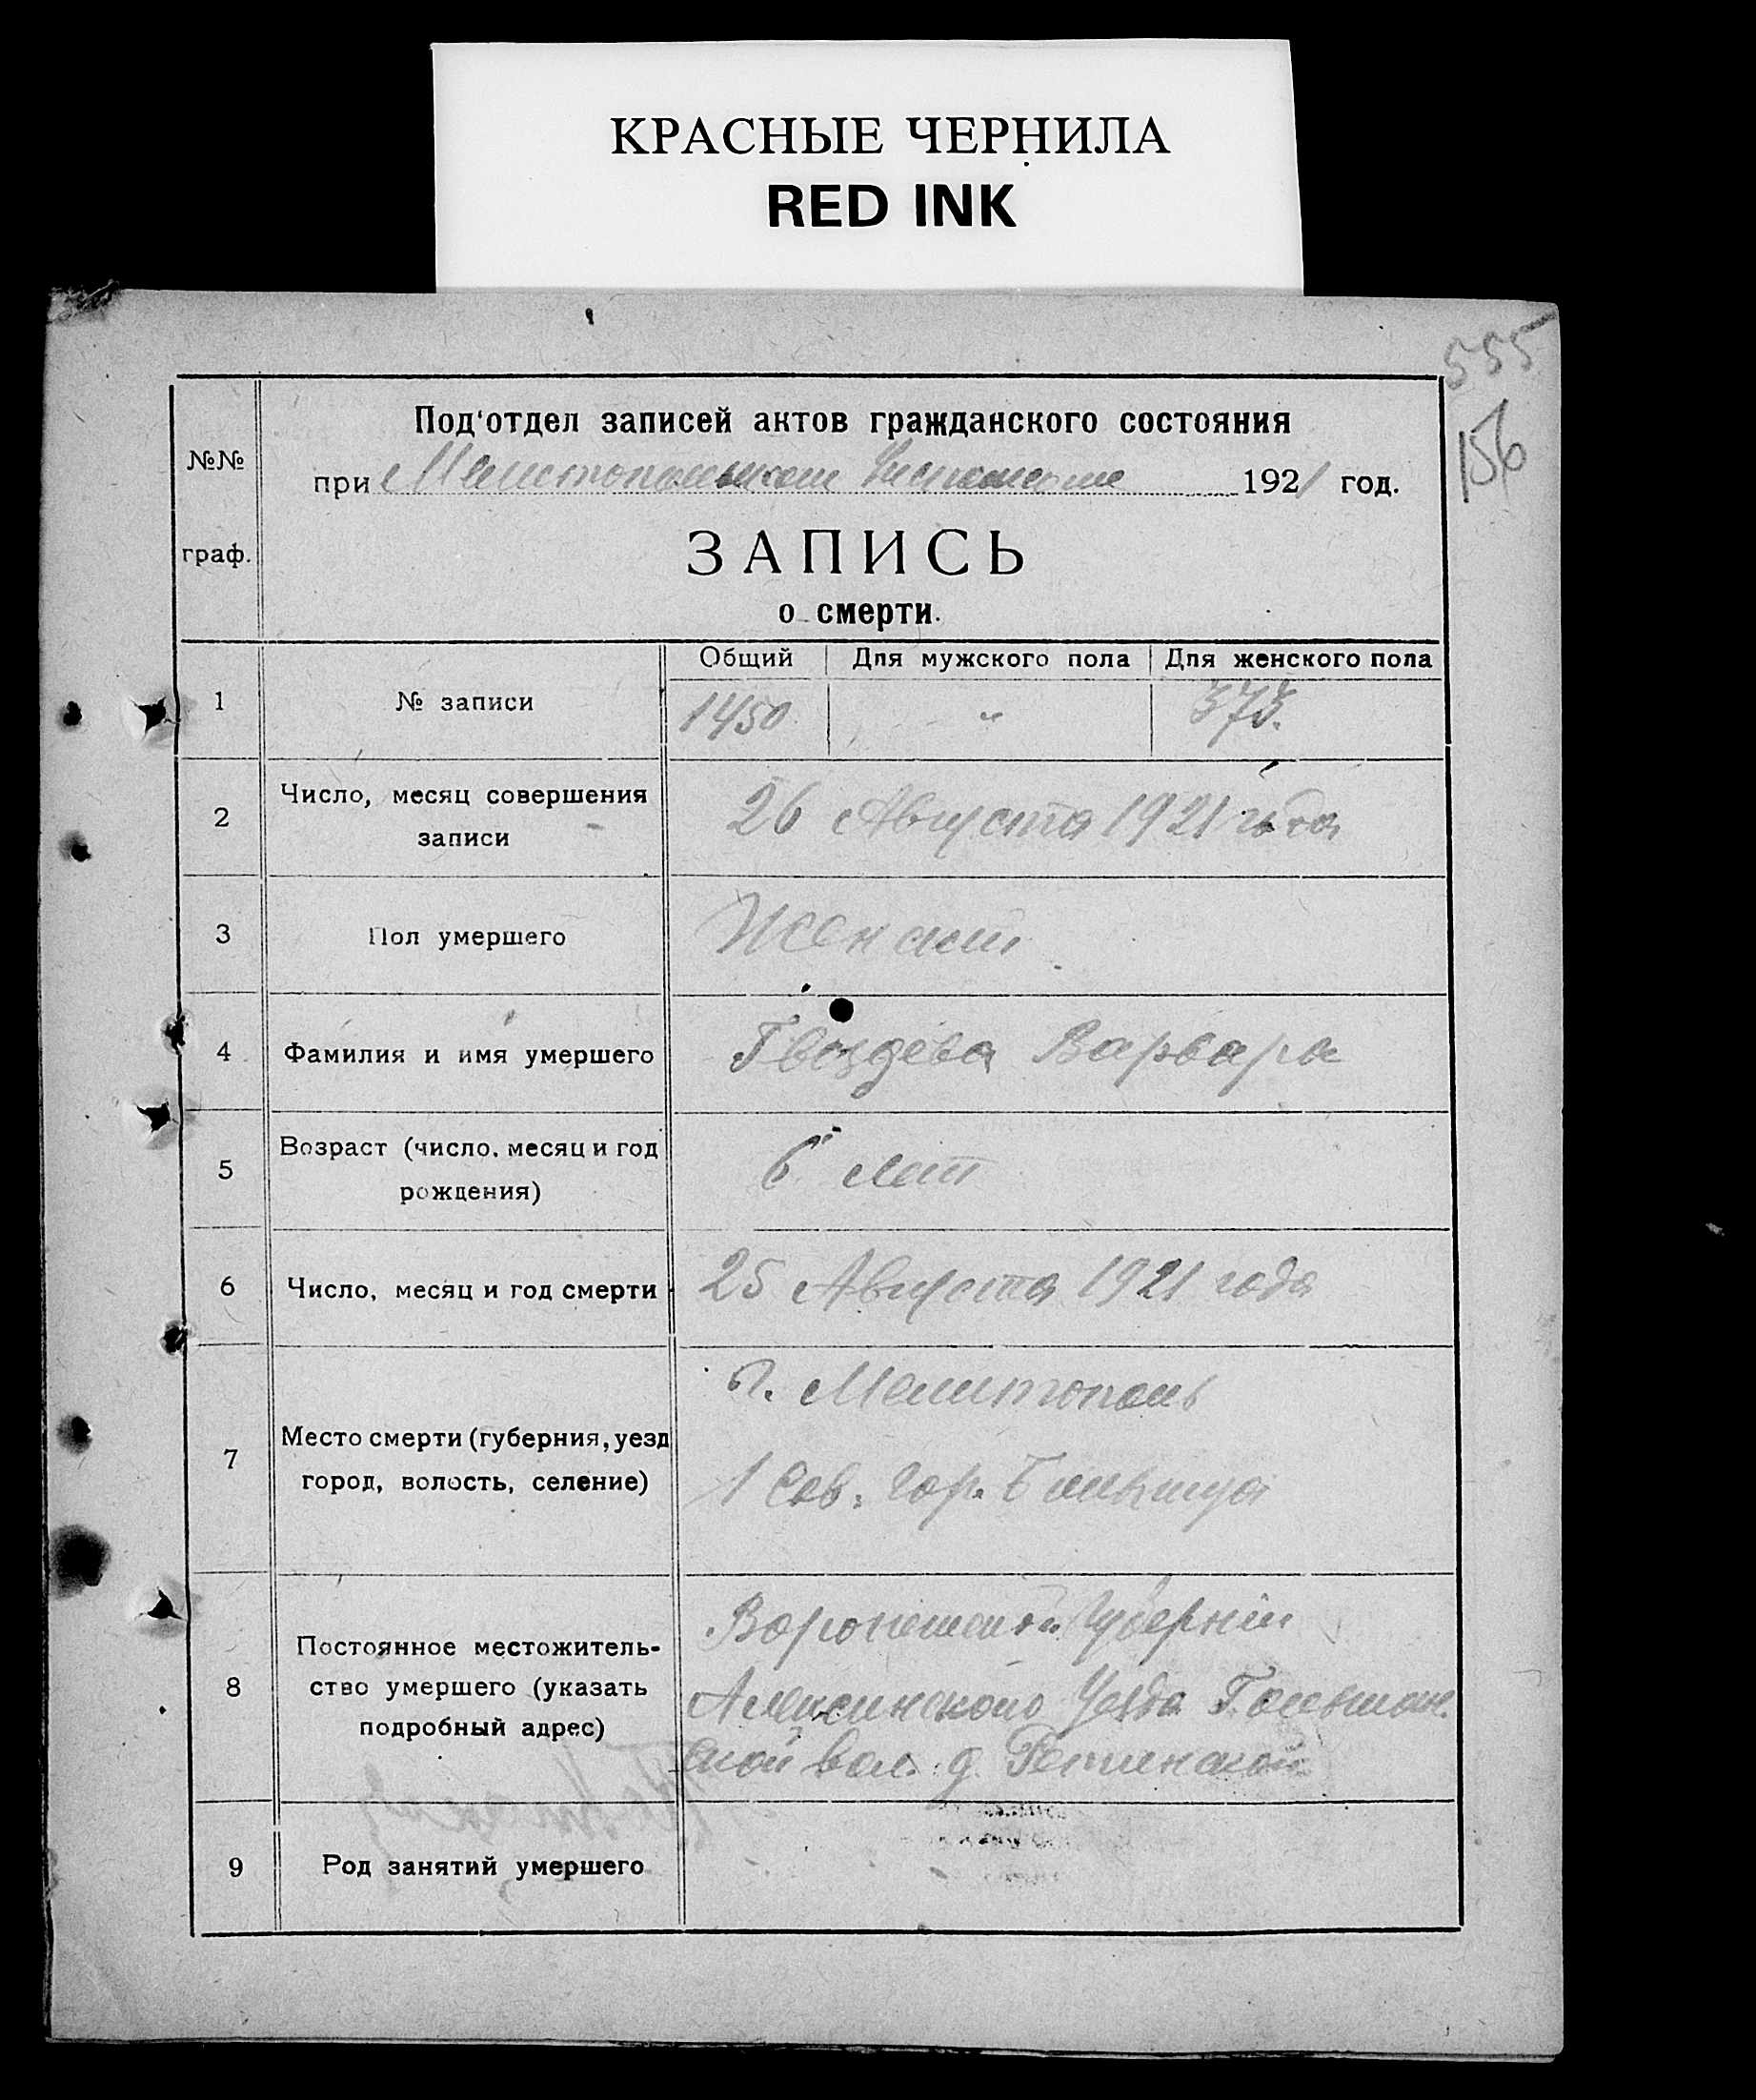 КРАСНЫЕ ЧЕРНИЛА
RED INK
555
156
Под'отдел записей актов гражданского состояния
№№
при Мелитопольском Исполкоме 1921 год.
граф.
ЗАПИСЬ
о смерти.
Общий Для мужского пола Для женского пола
1 № записи 1450 " 373.
2 Число, месяц совершения
записи
26 Августа 1921 года
3 Пол умершего Женский
4 Фамилия и имя умершего Гвоздева Варвара
5 Возраст (число, месяц и год
рождения)
6 лет
6 Число, месяц и год смерти 25 Августа 1921 года
7 Место смерти (губерния, уезд
город, волость, селение)
г. Мелитополь
1 Сов. Гор. Больница
8 Постоянное местожитель-
ство умершего (указать
подробный адрес)
Губернии
Уезда
ской вол. д.
9 Род занятий умершего